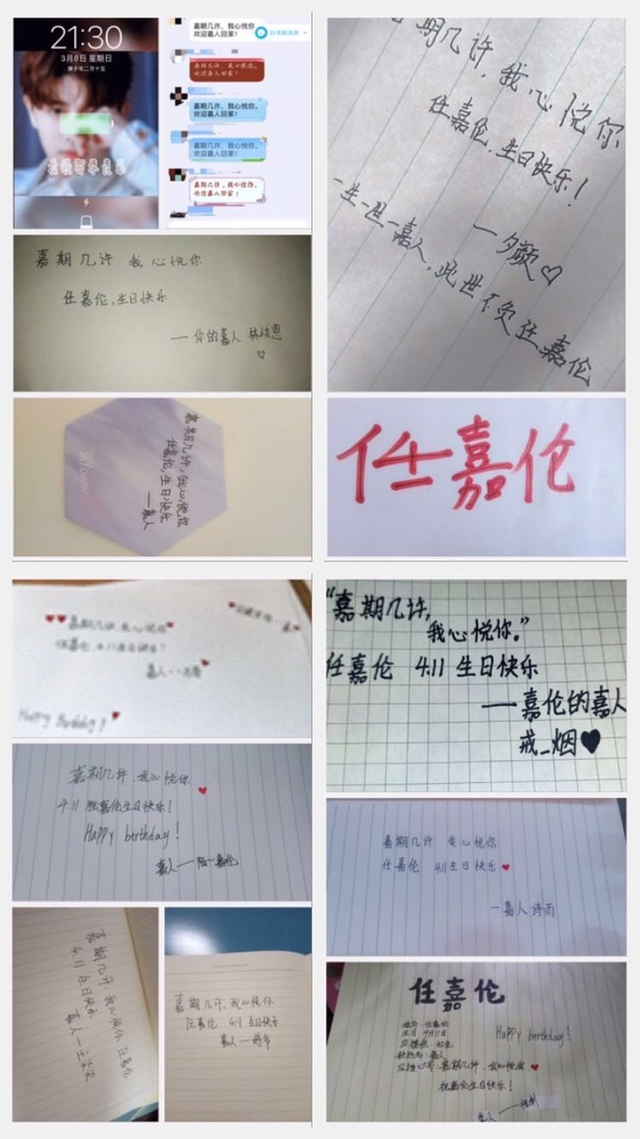 21:30
3月8日 星期日
庚子年二月十五
嘉期几许，我心悦你。
欢迎嘉人回家！
嘉期几许，我心悦你。
欢迎嘉人回家！
嘉期几许，我心悦你。
欢迎嘉人回家！
嘉期几许，我心悦你。
欢迎嘉人回家！
嘉期几许，我心悦你。
欢迎嘉人回家！
期几许，我心悦你
任嘉伦，生日快乐！
一夕颜♡
一生一世一嘉人，此世不负任嘉伦
嘉期几许 我心悦你
任嘉伦，生日快乐
—你的嘉人
♡
嘉期几许，我心悦你
任嘉伦，生日快乐
——嘉人
任嘉伦
嘉期几许，我心悦你
任嘉伦，4.11生日快乐！
嘉人
Happy Birthday!
“嘉期几许，
我心悦你。”
任嘉伦 4.11 生日快乐
——嘉伦的嘉人
戒_烟♥
嘉期几许，我心悦你
4.11 祝嘉伦生日快乐！
Happy birthday!
嘉人
嘉期几许 我心悦你
任嘉伦 4.11生日快乐
—嘉人 诗雨
嘉期几许，我心悦你 任嘉伦
4.11 生日快乐
嘉人
嘉期几许，我心悦你
任嘉伦 4.11 生日快乐
嘉人
任嘉伦
姓名：任嘉伦
生日：4月11日
粉丝名：嘉人
嘉期几许，我心悦你。
Happy birthday!
祝嘉伦生日快乐！
嘉人